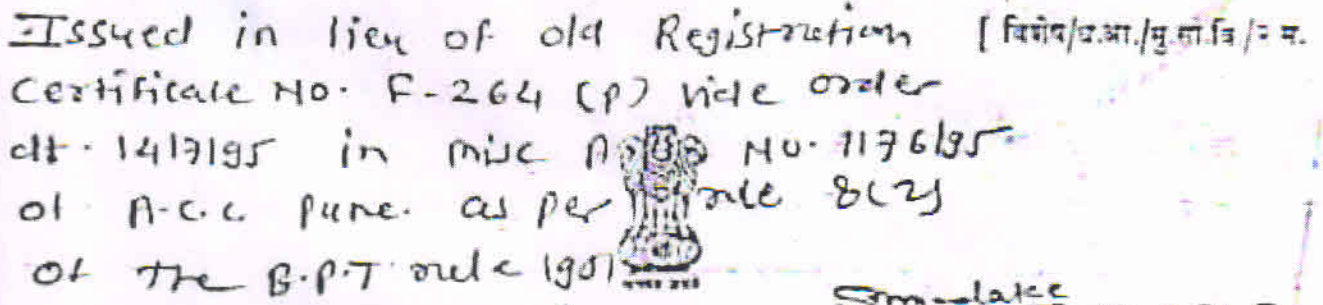 Issued in lieu of old Registration [ विशेष/प.आ./मु.सो.वि/२ म.
Certificate No. F-264 (P) vide order
dt. 14/7/95 in misc No. 1176/95
of A.C.C. Pune. as per rule 8(2)
of The B.P.T rule 1951